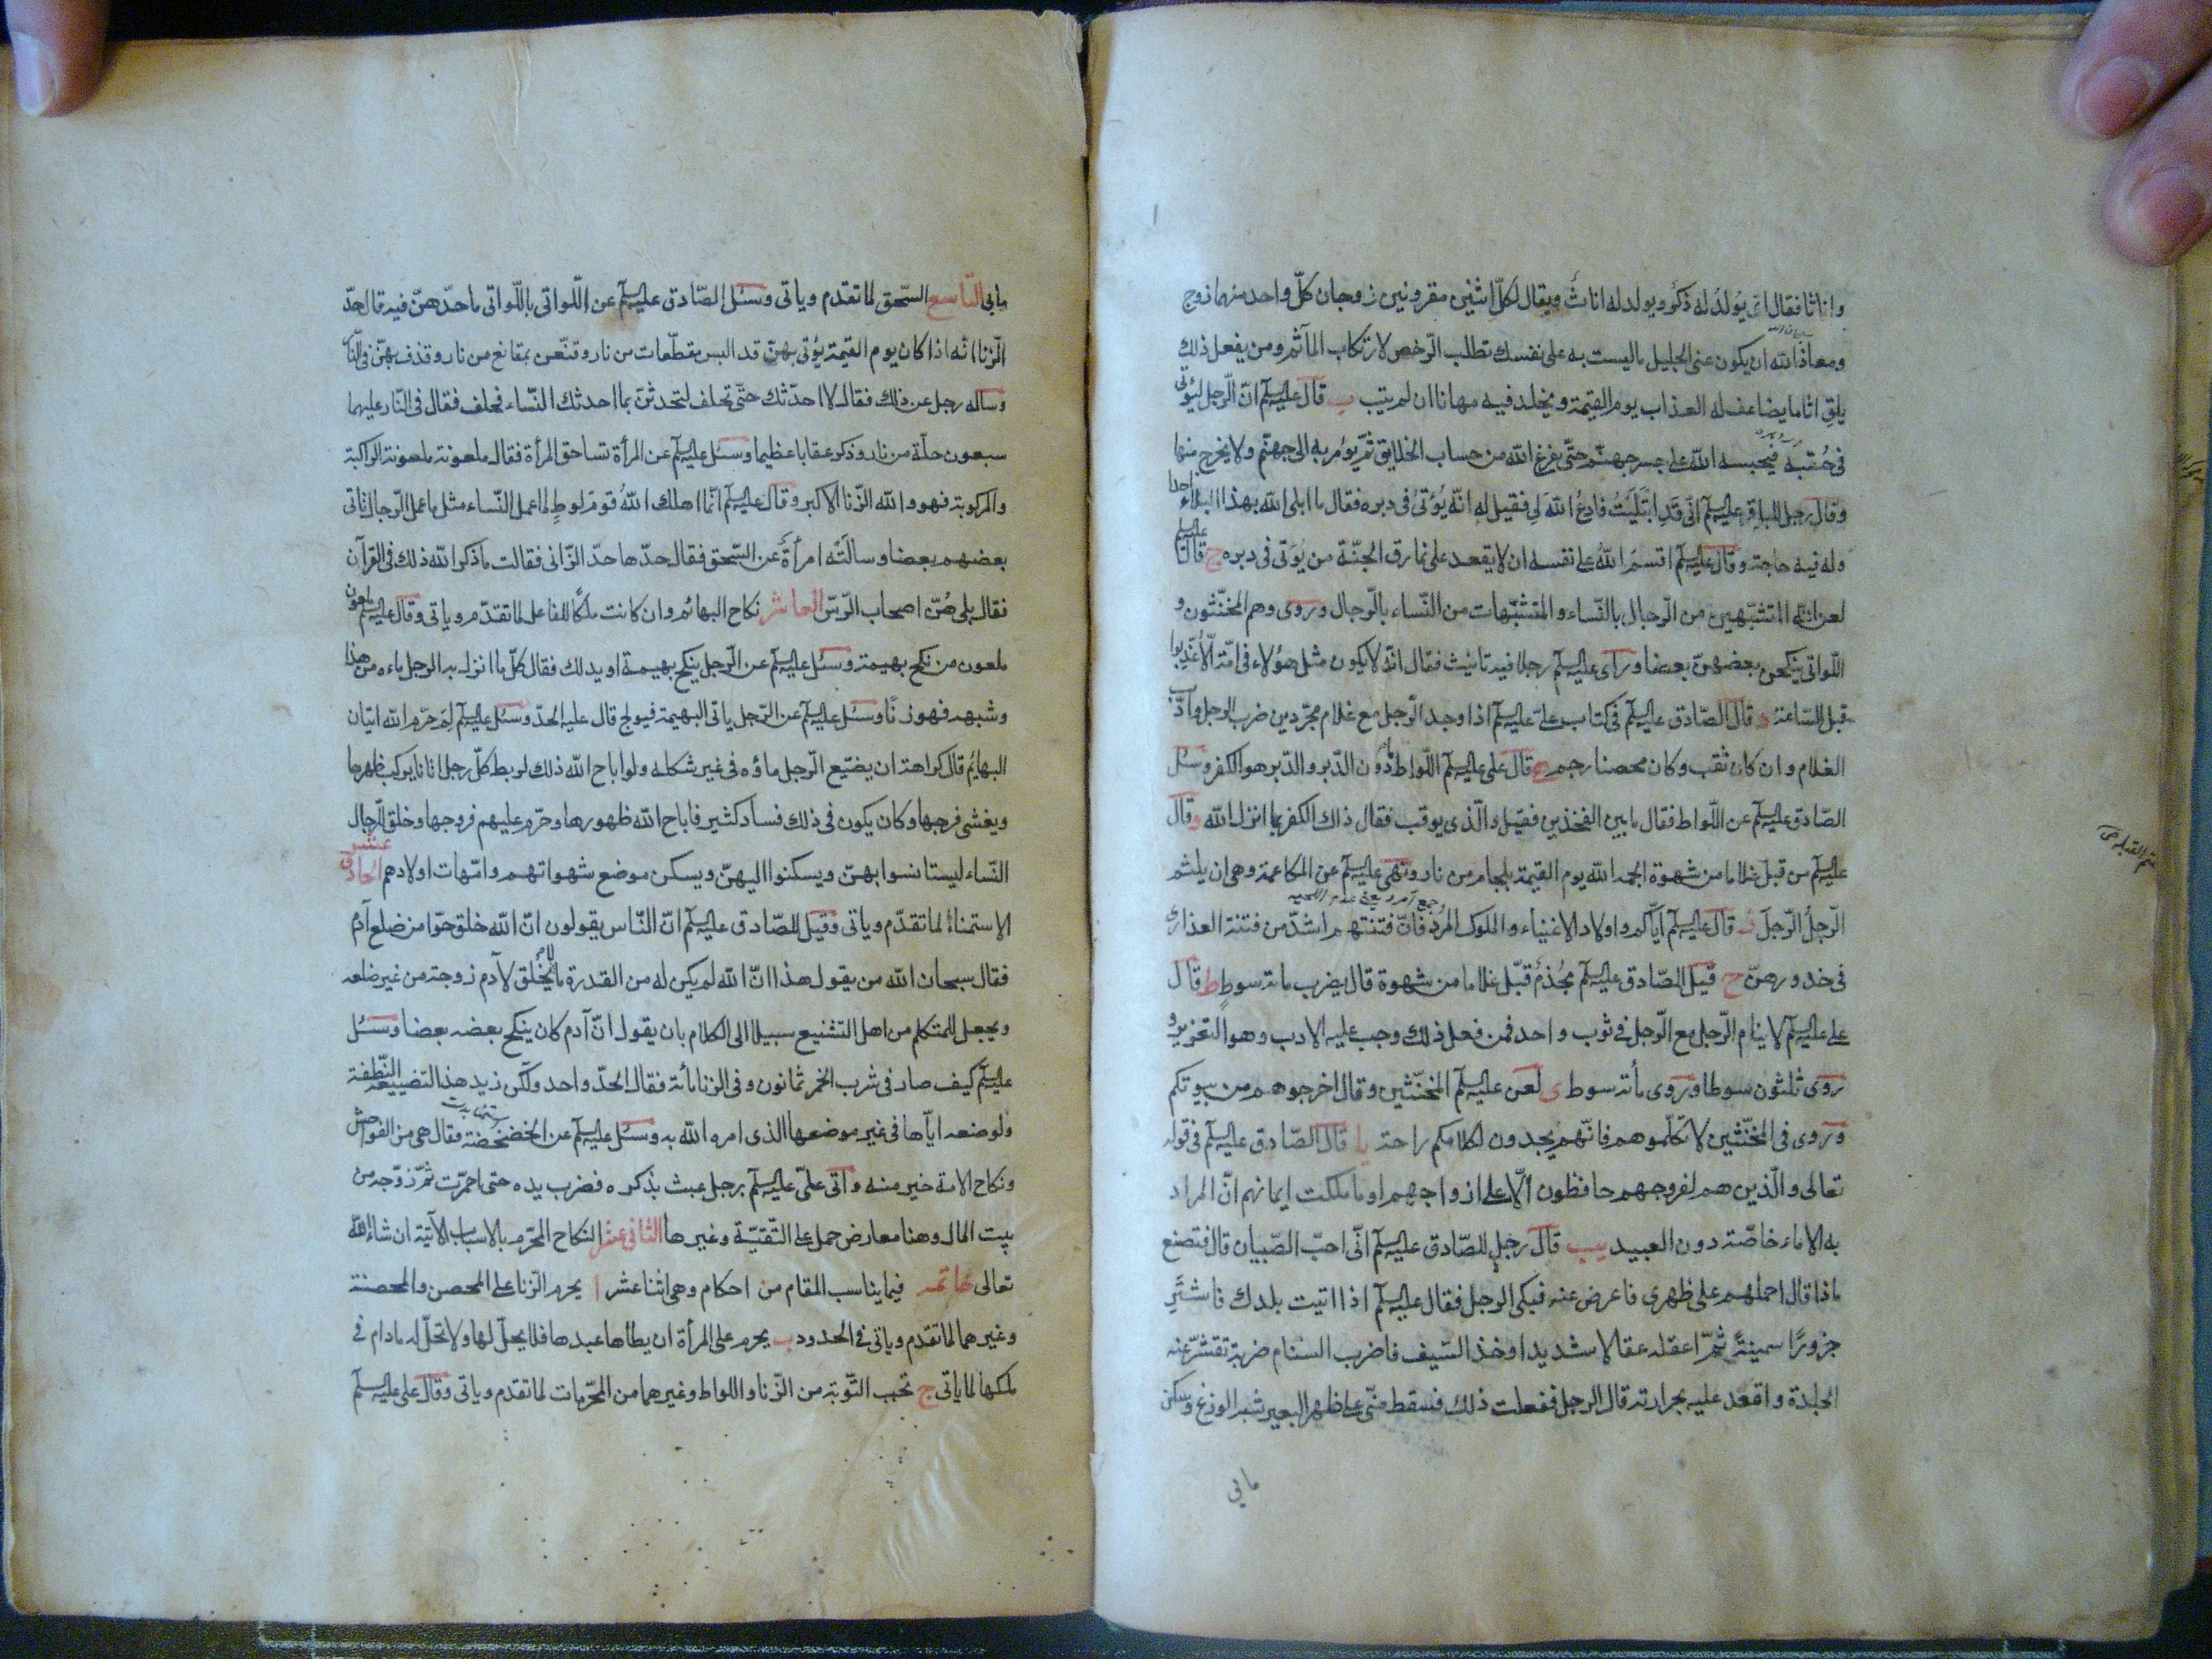 واناثا فقال اى يولد له ذكور ويولد له اناث ويقال لكل اثنين مقرونين زوجان كل واحد منهما زوج
ومعاذ الله ان يكون عنى الجليل ما لبست به على نفسك تطلب الرخص لارتكاب المآثم ومن يفعل ذلك
يلق اثاما يضاعف له العذاب يوم القيمة ويخلد فيه مهانا ان لم يتب ب قال عليه السلم ان الرجل ليؤتى
فى حقبه فيحبسه الله على جسر جهنم حتى يفرغ الله من حساب الخلايق ثم يؤمر به الى جهنم ولا يخرج منها
وقال رجل للباقر عليه السلم انى قد ابتليت فادع الله لى فقيل له انه يؤتى فى دبره فقال ما ابلى الله بهذا البلاء احدا
وله فيه حاجة وقال عليه السلم اقسم الله على نفسه ان لا يقعد على نمارق الجنة من يؤتى فى دبره ج قال عليه السلم
لعن الله المتشبهين من الرجال بالنساء والمتشبهات من النساء بالرجال وروى وهم المخنثون و
اللواتى ينكحن بعضهن بعضا وراى عليه السلم رجلا فيه تانيث فقال انه لا يكون مثل هؤلاء فى امة الا عذبوا
قبل الساعة د قال الصادق عليه السلم فى كتاب على عليه السلم اذا وجد الرجل مع غلام مجردين ضرب الرجل وادب
الغلام وان كان ثقب وكان محصنا رجم ه قال على عليه السلم اللواط ما دون الدبر والدبر هو الكفر وسئل
الصادق عليه السلم عن اللواط فقال ما بين الفخذين فقيل والذى يوقب فقال ذاك الكفر بما انزل الله و قال
عليه السلم من قبل غلاما من شهوة الجمه الله يوم القيمة بلجام من نار ونهى عليه السلم عن المكاعمة وهى ان يلثم
الرجل الرجل ز قال عليه السلم اياكم واولاد الاغنياء والملوك المرد فان فتنتهم اشد من فتنة العذارى
فى خدورهن ح قيل للصادق عليه السلم مجذم قبل غلاما من شهوة قال يضرب مائة سوط ط قال
على عليه السلم لا ينام الرجل مع الرجل فى ثوب واحد فمن فعل ذلك وجب عليه الادب وهو التعزير و
روى ثلثون سوطا وروى مأة سوط ى لعن عليه السلم المخنثين وقال اخرجوهم من بيوتكم
وروى فى المخنثين لا تكلموهم فانهم يجدون لكلامكم راحة يا قال الصادق عليه السلم فى قوله
تعالى والذين هم لفروجهم حافظون الا على ازواجهم او ما ملكت ايمانهم ان المراد
به الاماء خاصة دون العبيد يب قال رجل للصادق عليه السلم انى احب الصبيان قال فتصنع
ماذا قال احملهم على ظهرى فاعرض عنه فبكى الرجل فقال عليه السلم اذا اتيت بلدك فاشتر
جزورا سمينة ثم اعقله عقالا شديدا وخذ السيف فاضرب السنام ضربة تقشر عنه
الجلدة واقعد عليه بحرارته قال الرجل ففعلت ذلك فسقط منى على ظهر البعير شبه الوزغ وسكن
مابى
مابى التاسع السحق لما تقدم وياتى وسئل الصادق عليه السلم عن اللواتى باللواتى ما حدهن فيه قال حد
الزنا انه اذا كان يوم القيمة يؤتى بهن قد البس مقطعات من نار وقنعن بمقانع من نار وقذف بهن فى النار
وساله رجل عن ذلك فقال لا احدثك حتى تحلف لتحدثن بما احدثك النساء فحلف فقال فى النار عليهما
سبعون حلة من نار وذكر عقابا عظيما وسئل عليه السلم عن المرأة تساحق المرأة فقال ملعونة ملعونة الراكبة
والمركوبة فهو والله الزنا الاكبر وقال عليه السلم انما اهلك الله قوم لوط لما عمل النساء مثل ما عمل الرجال ياتى
بعضهم بعضا وسالته امرأة عن السحق فقال حدها حد الزانى فقالت ما ذكر الله ذلك فى القرآن
فقال بلى هن اصحاب الرس العاشر نكاح البهائم وان كانت ملكا للفاعل لما تقدم وياتى وقال عليه السلم ملعون
ملعون من نكح بهيمة وسئل عليه السلم عن الرجل ينكح بهيمة او يدلك فقال كل ما انزل به الرجل ماءه من هذا
وشبهه فهو زنا وسئل عليه السلم عن الرجل ياتى البهيمة فيولج قال عليه الحد وسئل عليه السلم لم حرم الله اتيان
البهائم قال كراهة ان يضيع الرجل ماؤه فى غير شكله ولو اباح الله ذلك لربط كل رجل اتانا يركب ظهرها
ويغشى فرجها وكان يكون فى ذلك فساد كثير فاباح الله ظهورها وحرم عليهم فروجها وخلق للرجال
النساء ليستانسوا بهن ويسكنوا اليهن ويسكن موضع شهواتهم وامهات اولادهم الحادى عشر
الاستمناء لما تقدم وياتى وقيل للصادق عليه السلم ان الناس يقولون ان الله خلق حوا من ضلع آدم
فقال سبحان الله من يقول هذا ان الله لم يكن له من القدرة ما يخلق لآدم زوجة من غير ضلعه
ويجعل للمتكلم من اهل التشنيع سبيلا الى الكلام بان يقول ان آدم كان ينكح بعضه بعضا وسئل
عليه السلم كيف صار فى شرب الخمر ثمانون وفى الزنا مأة فقال الحد واحد ولكن زيد هذا لتضييعه النطفة
ولوضعه اياها فى غير موضعها الذى امره الله به وسئل عليه السلم عن الخضخضة فقال هى من الفواحش
ونكاح الامة خير منه واتى على عليه السلم برجل عبث بذكره فضرب يده حتى احمرت ثم زوجه من
بيت المال وهنا معارض حمل على التقية وغيرها الثانى عشر النكاح المحرم بالاسباب الآتية ان شاء الله
تعالى خاتمه فيما يناسب المقام من احكام وهى اثنا عشر ا يحرم الزنا على المحصن والمحصنة
وغيرهما لما تقدم وياتى فى الحدود ب يحرم على المرأة ان يطاها عبدها فلا يحل لها ولا تحل له ما دام فى
ملكها لما ياتى ج تجب التوبة من الزنا واللواط وغيرهما من المحرمات لما تقدم وياتى وقال على عليه السلم